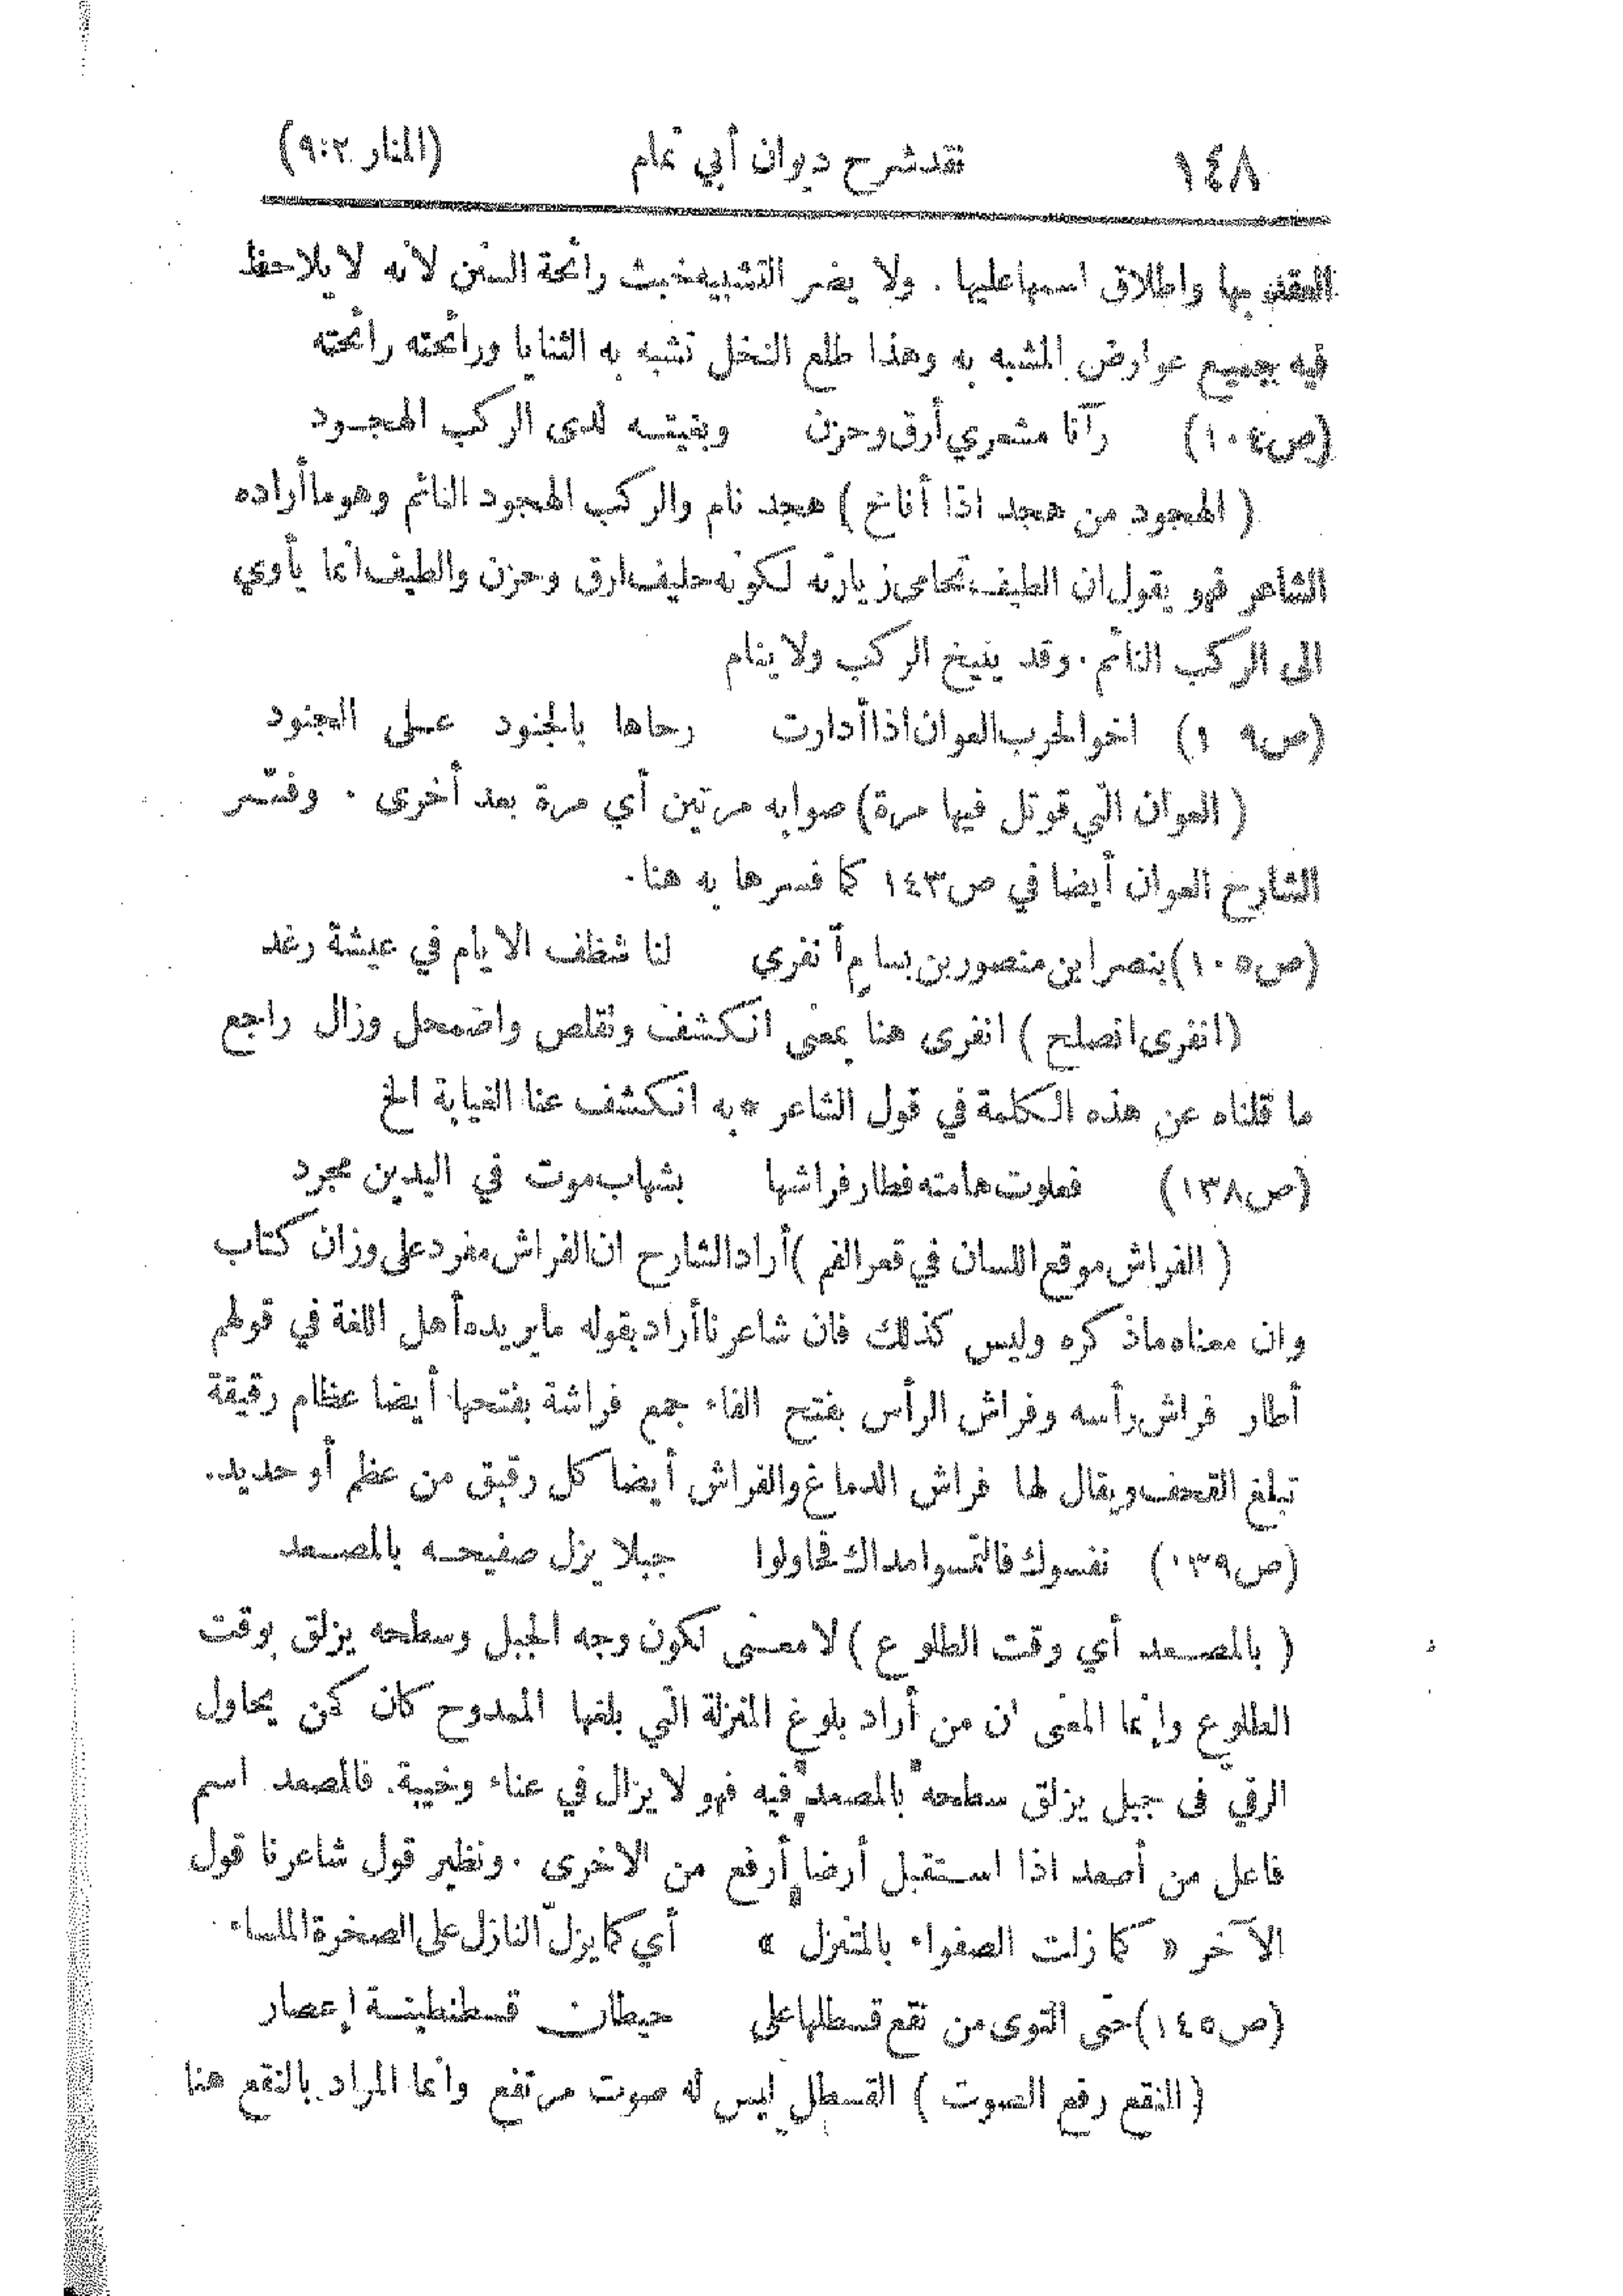 ١٤٨ نقد شرح ديوان أبي تمام (المنار ٩:٢)
العقد بها واطلاق اسمها عليها . ولا يضر التشبيه خبث رائحة السنن لأنه لا يلاحظ
فيه جميع عوارض المشبه به وهذا طلع النخل تشبه به الثنايا ورائحته رائحته
(ص١٠٤) رآنا مشعري أرق وحزن وبغيته لدى الركب الهجود
( الهجود من هجد اذا أناخ ) هجد نام والركب الهجود النائم وهو ما أراده
الشاعر فهو يقول ان الطيف تحامى زيارته لكونه حليف ارق وحزن والطيف انما يأوي
الى الركب النائم . وقد ينيخ الركب ولا ينام
(ص٩ ١) اخو الحرب العوان اذا أدارت رحاها بالجنود عـلى الجنود
( العوان التي قوتل فيها مرة) صوابه مرتين أي مرة بعد أخرى . وفسّر
الشارح العوان أيضا في ص١٤٣ كما فسرها به هنا .
(ص١٠٥) بنصر ابن منصور بن بسام آنفري لنا شظف الايام في عيشة رغد
(انفرى انصلح ) انفرى هنا بمعنى انكشف وتقلص واضمحل وزال راجع
ما قلناه عن هذه الكلمة في قول الشاعر * به انكشف عنا الغيابة الخ
(ص١٣٨) فعلوت هامته فطار فراشها بشهاب موت في اليدين مجرد
( الفراش موقع اللسان في قعر الفم )أراد الشارح ان الفراش مفرد على وزان كتاب
وان معناه ماذكره وليس كذلك فان شاعرنا أراد بقوله ما يريده أهل اللغة في قولهم
أطار فراش رأسه وفراش الرأس بفتح الفاء جمع فراشة بفتحها أيضا عظام رقيقة
تبلغ القحف ويقال لها فراش الدماغ والفراش أيضا كل رقيق من عظم أو حديد .
(ص١٣٩) نفسوك فالتمسوا مداك فحاولوا جبلا يزل صفيحـه بالمصـعد
( بالمصـعد أي وقت الطلوع ) لا معنـى لكون وجه الجبل وسطحه يزلق بوقت
الطلوع وإنما المعنى ان من أراد بلوغ المنزلة التي بلغها الممدوح كان كمن يحاول
الرقي فى جبل يزلق سطحه بالمصعد فيه فهو لا يزال في عناء وخيبة. فالمصعد اسم
فاعل من أصعد اذا استقبل أرضا أرفع من الاخرى . ونظير قول شاعرنا قول
الآخر « كما زلت الصفواء بالمتنزل » أي كما يزلّ النازل على الصخرة الملساء
(ص١٤٥) حتى التوى من نقع قسطلها على حيطان قسطنطينـة إعصار
( النقع رفع الصوت ) القسطل ليس له صوت مرتفع وانما المراد بالنقع هنا